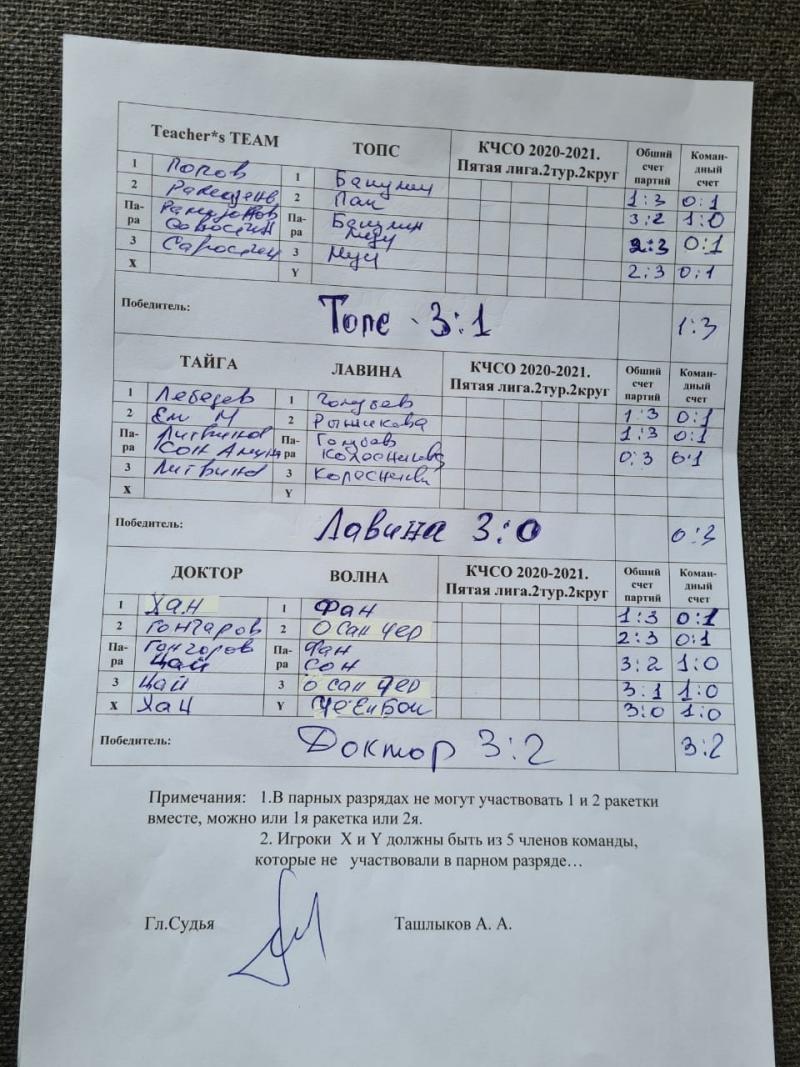 Teacher*s TEAM ТОПС КЧСО 2020-2021. Пятая лига.2тур.2круг Общий счет партий Коман-дный счет
1 Попов 1 Бакулин 1:3 0:1
2 2 Пак 3:2 1:0
Па-ра Саростин Па-ра Бакулин 2:3 0:1
3 3 2:3 0:1
X Y
Победитель: Топс - 3:1 1:3
ТАЙГА ЛАВИНА КЧСО 2020-2021. Пятая лига.2тур.2круг Общий счет партий Коман-дный счет
1 Лебедев 1 Голубев 1:3 0:1
2 Ем М 2 Рыжикова 1:3 0:1
Па-ра Литвинов Па-ра Голубев Колесникова 0:3 0:1
3 Литвинов 3 Колесникова
X Y
Победитель: Лавина 3:0 0:3
ДОКТОР ВОЛНА КЧСО 2020-2021. Пятая лига.2тур.2круг Общий счет партий Коман-дный счет
1 Хан 1 Фан 1:3 0:1
2 Гончаров 2 О сан чер 2:3 0:1
Па-ра Гончаров Цай Па-ра Фан Сон 3:2 1:0
3 Цай 3 О сан чер 3:1 1:0
X Хан Y 3:0 1:0
Победитель: Доктор 3:2 3:2
Примечания: 1.В парных разрядах не могут участвовать 1 и 2 ракетки
вместе, можно или 1я ракетка или 2я.
2. Игроки X и Y должны быть из 5 членов команды,
которые не участвовали в парном разряде…
Гл.Судья Ташлыков А. А.